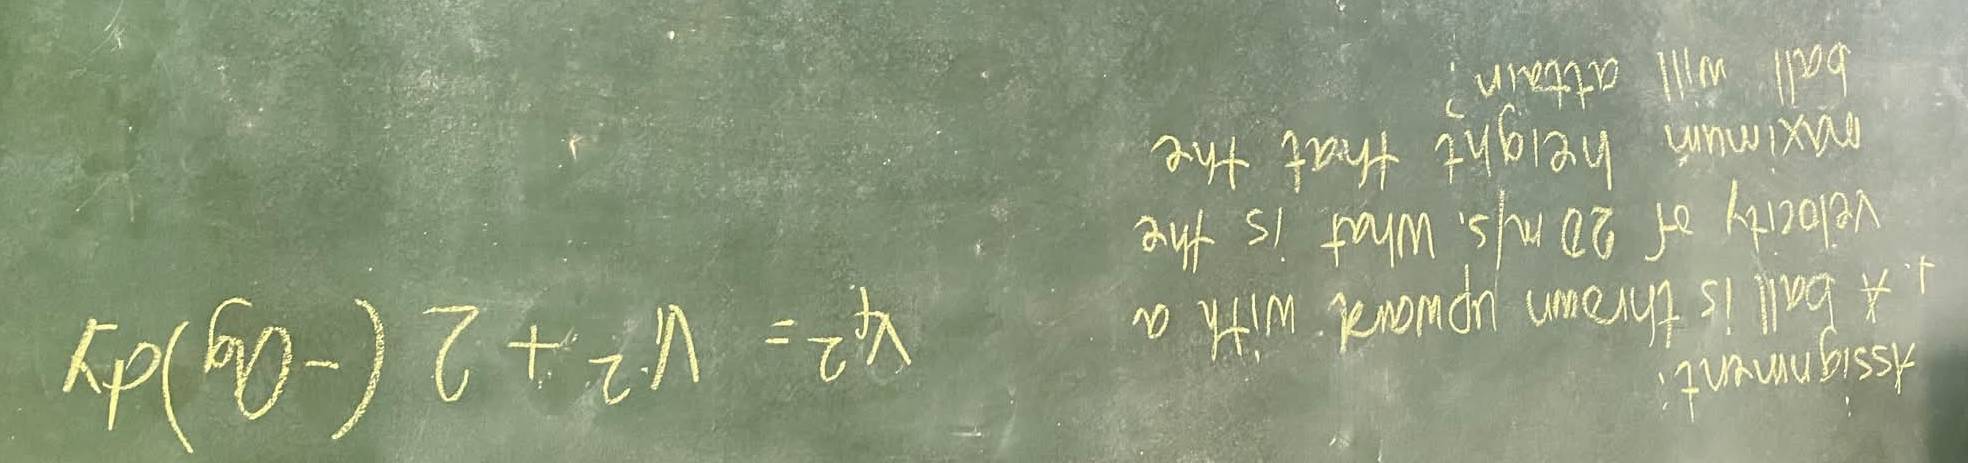 Assignment:
1. A ball is thrown upward with a
velocity of 20 m/s. What is the
maximum height that the
ball will attain?
Vf² = Vi² + 2 (-ag)dy